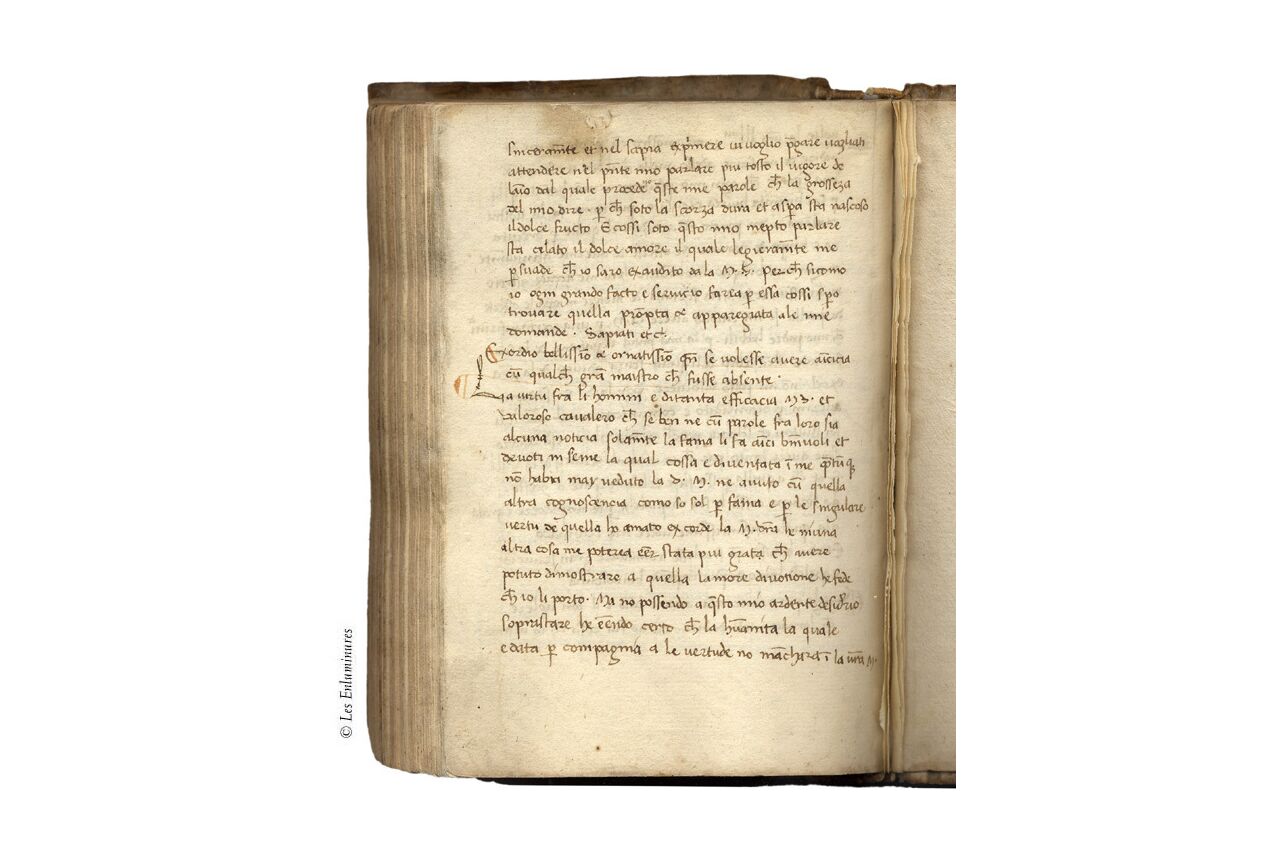 sinceram̄te et nel sapia exp̄mere vi voglio p̄gare vogliati
attendere nel pn̄te mio parlare piu tosto il vigore de
laīo dal quale procede q̄ste mie parole ch̄ la grosseza
del mio dire . p̱ ch̄ soto la scorza dura et asp̱a sta nascoso
il dolce fructo E cossi soto q̄sto mio inepto parlare
sta celato il dolce amore il quale legieram̄te me
p̱suade ch̄ io saro exaudito da la M. V. Perch̄ sicomo
io ogni grando facto e servicio faria p̱ essa cossi sp̱o
trovare quella prōpta et apparegiata ale mie
domande . Sapiati et c̄.
Exordio bellissīo et ornatissīo qn̄ se volesse avere amīcicia
cū qualch̄ gran̄ maistro ch̄ fusse absente .
La virtu fra li homini e di tanta efficacia M. et
valoroso cavalero ch̄ se ben ne cū parole fra loro sia
alcuna noticia solam̄te la fama li fa amīci bn̄ivoli et
devoti in seme la qual cossa e diventata ī me
nō habia may veduto la M. ne avuto cū quella
altra cognoscencia como so sol p̱ fama e p̱ le singulare
vertu de quella ho amato ex corde la M. vr̄a le niuna
altra cosa me poterea eēr stata piu grata ch̄ avere
potuto dimostrare a quella lamore divotione he fede
ch̄ io li porto . Ma no possendo a q̄sto mio ardente desidr̄io
soprastare he eēndo certo ch̄ la hūanita la quale
e data p̱ compagnia a le vertude no mācharā ī la vr̄a M.
© Les Enluminures